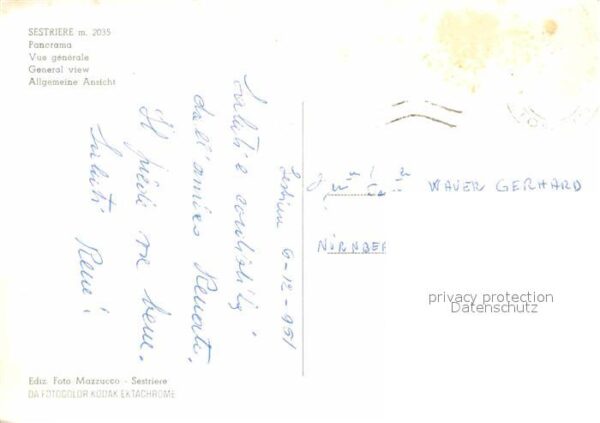 SESTRIERE m. 2035
Panorama
Vue générale
General view
Allgemeine Ansicht
Saluti e
dall'amico Renato.
Il piede va bene.
Saluti René!
WAUER GERHARD
NÜRNBER
privacy protection
Datenschutz
Ediz. Foto Mazzucco - Sestriere
DA FOTOCOLOR KODAK EKTACHROME